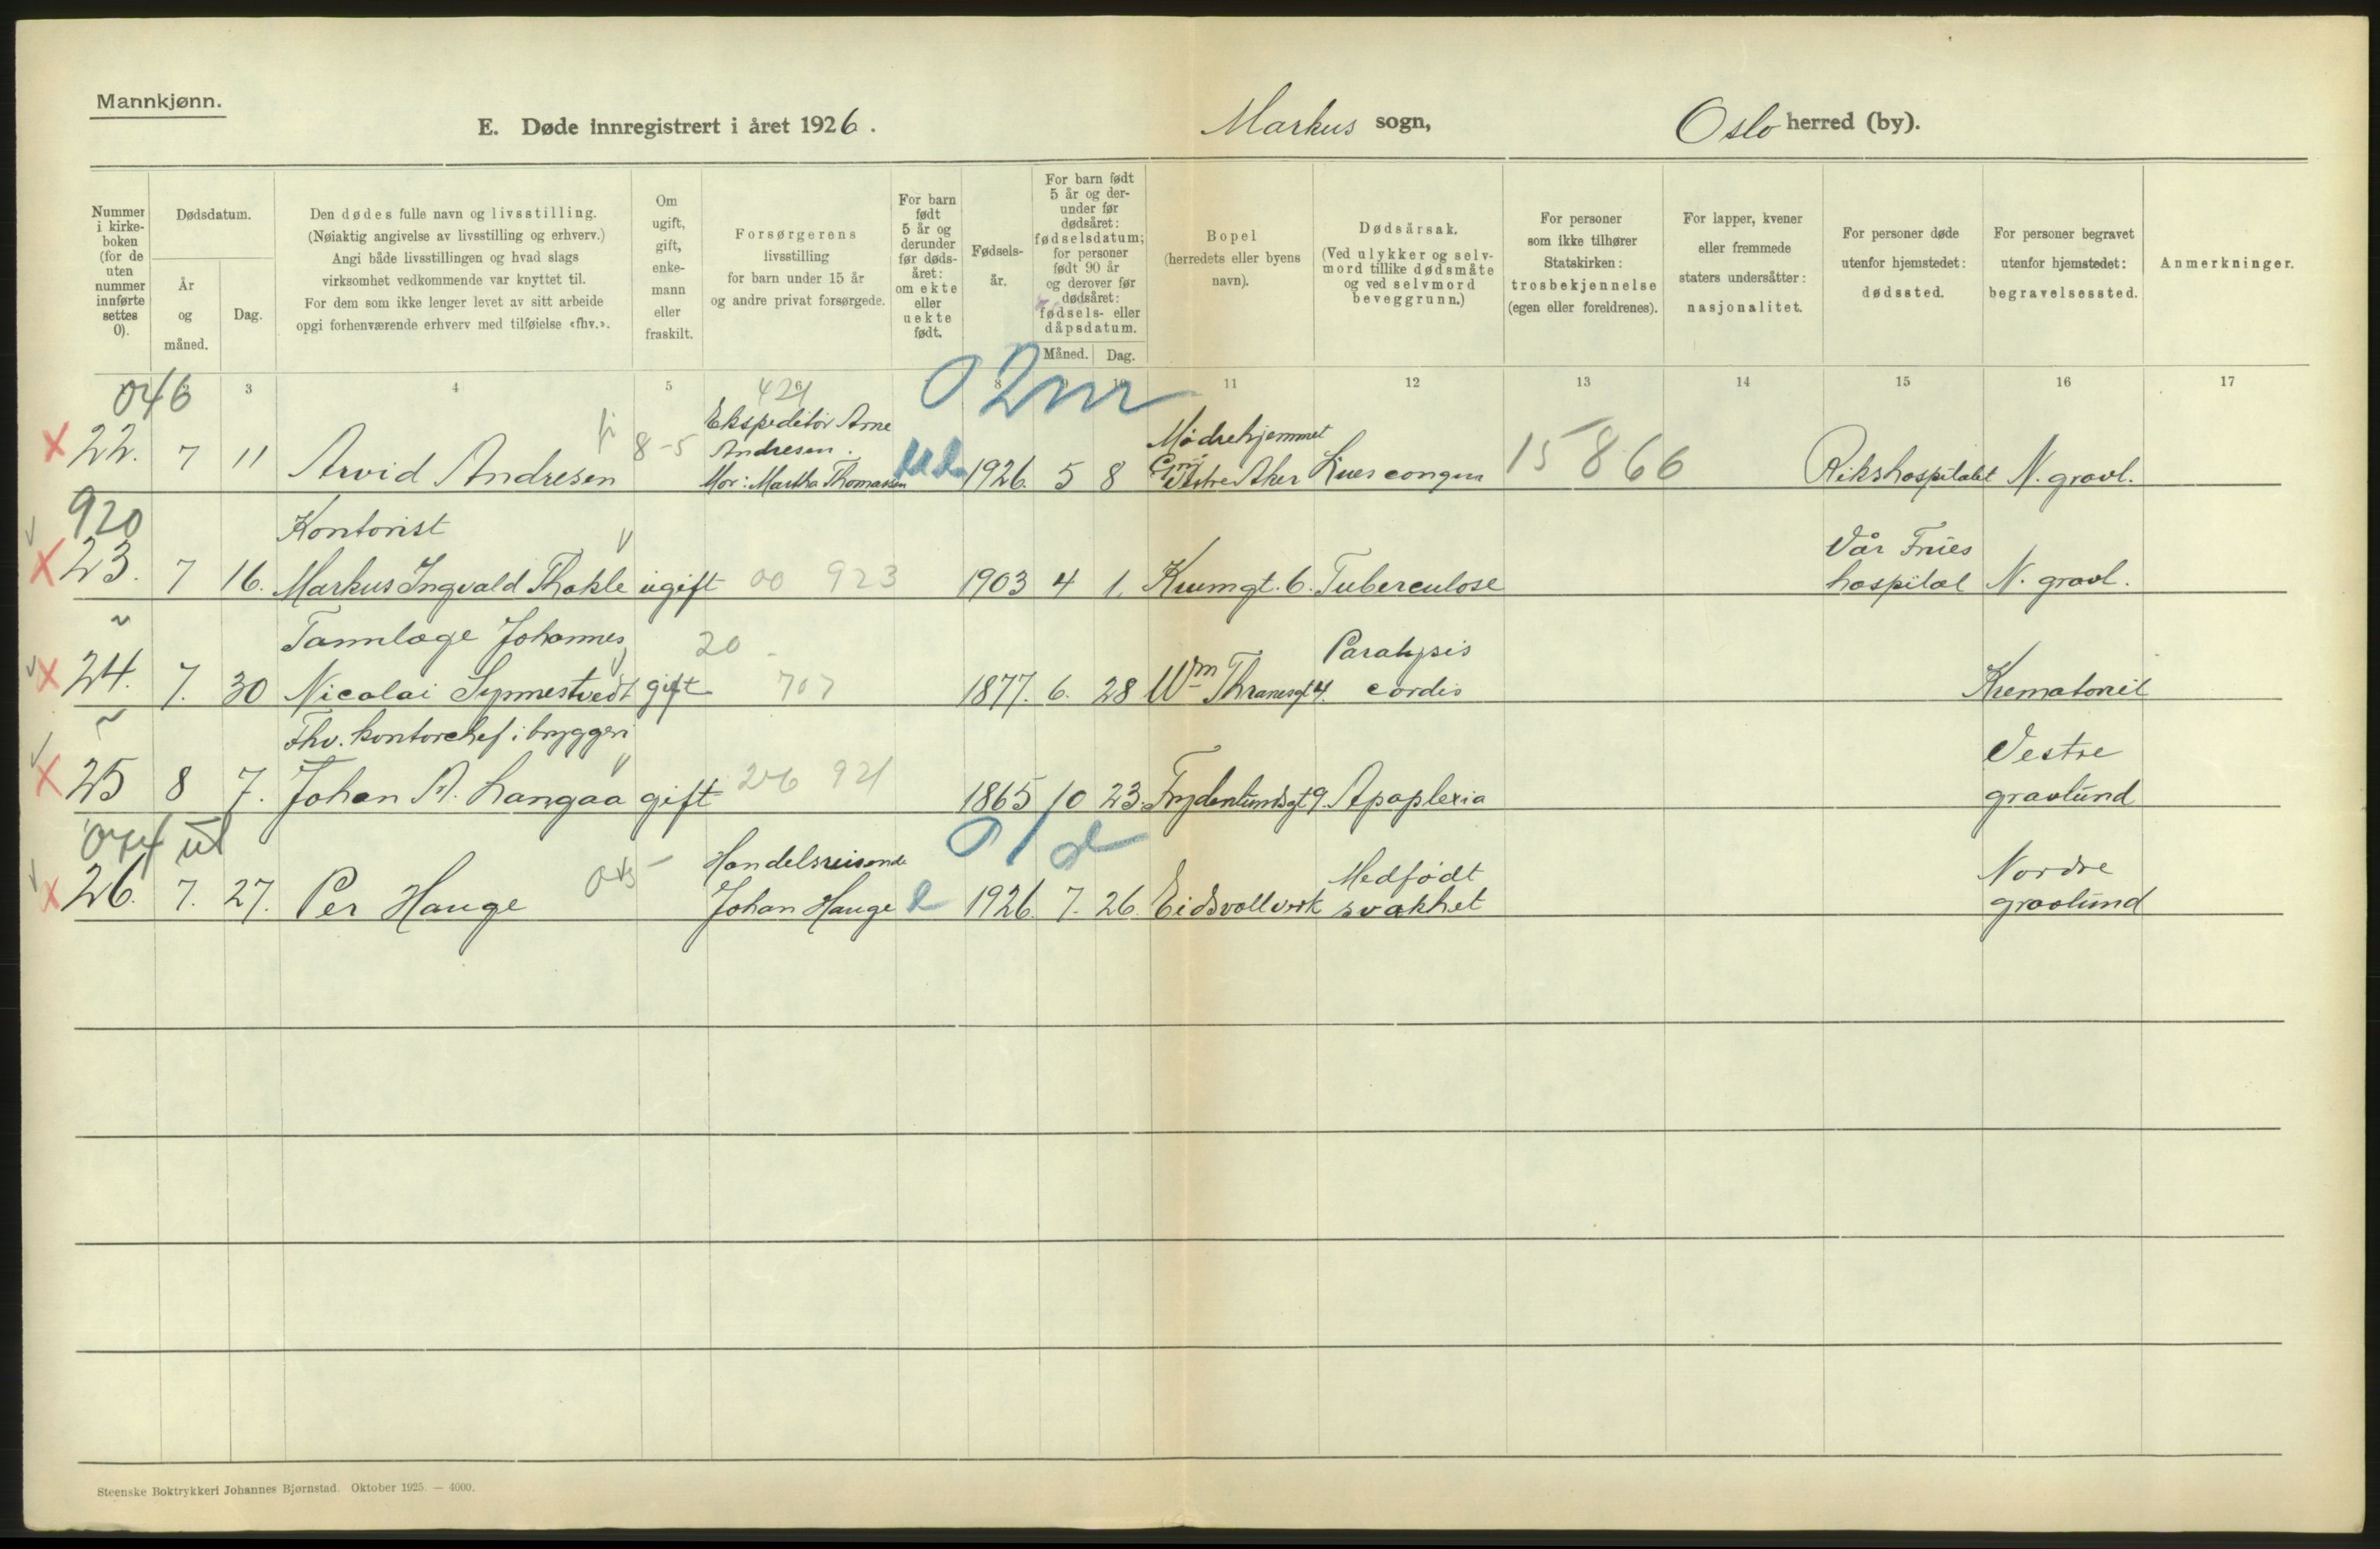 Mannkjønn.
E. Døde innregistrert i året 1926. Markus sogn, Oslo herred (by).
Nummer i kirke-boken (for de uten nummer innførte settes 0).
Dødsdatum.
År og måned.
Dag.
Den dødes fulle navn og livsstilling.
(Nøiaktig angivelse av livsstilling og erhverv.)
Angi både livsstillingen og hvad slags
virksomhet vedkommende var knyttet til.
For dem som ikke lenger levet av sitt arbeide
opgi forhenværende erhverv med tilføielse «fhv.».
Om ugift, gift, enke-mann eller fraskilt.
Forsørgerens
livsstilling
for barn under 15 år
og andre privat forsørgede.
For barn født 5 år og derunder før døds-året: om ekte eller uekte født.
Fødsels-år.
For barn født 5 år og der-under før dødsåret: fødselsdatum; for personer født 90 år og derover før dødsåret: fødsels- eller dåpsdatum.
Måned. Dag.
Bopel
(herredets eller byens
navn).
Dødsårsak.
(Ved ulykker og selv-
mord tillike dødsmåte
og ved selvmord
beveggrunn.)
For personer
som ikke tilhører
Statskirken:
trosbekjennelse
(egen eller foreldrenes).
For lapper, kvener
eller fremmede
staters undersåtter:
nasjonalitet.
For personer døde
utenfor hjemstedet:
dødssted.
For personer begravet
utenfor hjemstedet:
begravelsessted.
Anmerkninger.
3 4 5 8 11 12 13 14 15 16 17
046 421 0 2m
Ekspeditør Arne
Andresen. Mødrehjemmet
22. 7 11 Arvid Andresen 8-5 Mor: Martha Thomassen 1926. 5 8 Aker Lues congen 15866 Rikshospitalet N. gravl.
920 Kontorist Vår Frues
23. 7 16. Markus Ingvald Thokle ugift 00 923 1903 4 1. Krumgt. 6. Tuberculose hospital N. gravl.
Tannlæge Johannes 20 Paralysis
24. 7. 30 Nicolai Synnestvedt gift 707 1877. 6. 28 Wm Thranesgt 4. cordis Krematoriet
Fhv. kontorchef i bryggeri Vestre
25 8 7. Johan A. Langaa gift 921 1865 10 23. Frydenlundsgt 9. Apoplexia gravlund
Handelsreisende Medfødt Nordre
26. 7. 27. Per Hauge Johan Hauge 1926. 7. 26. Eidsvoll verk svakhet gravlund
Steenske Boktrykkeri Johannes Bjørnstad. Oktober 1925. — 4000.